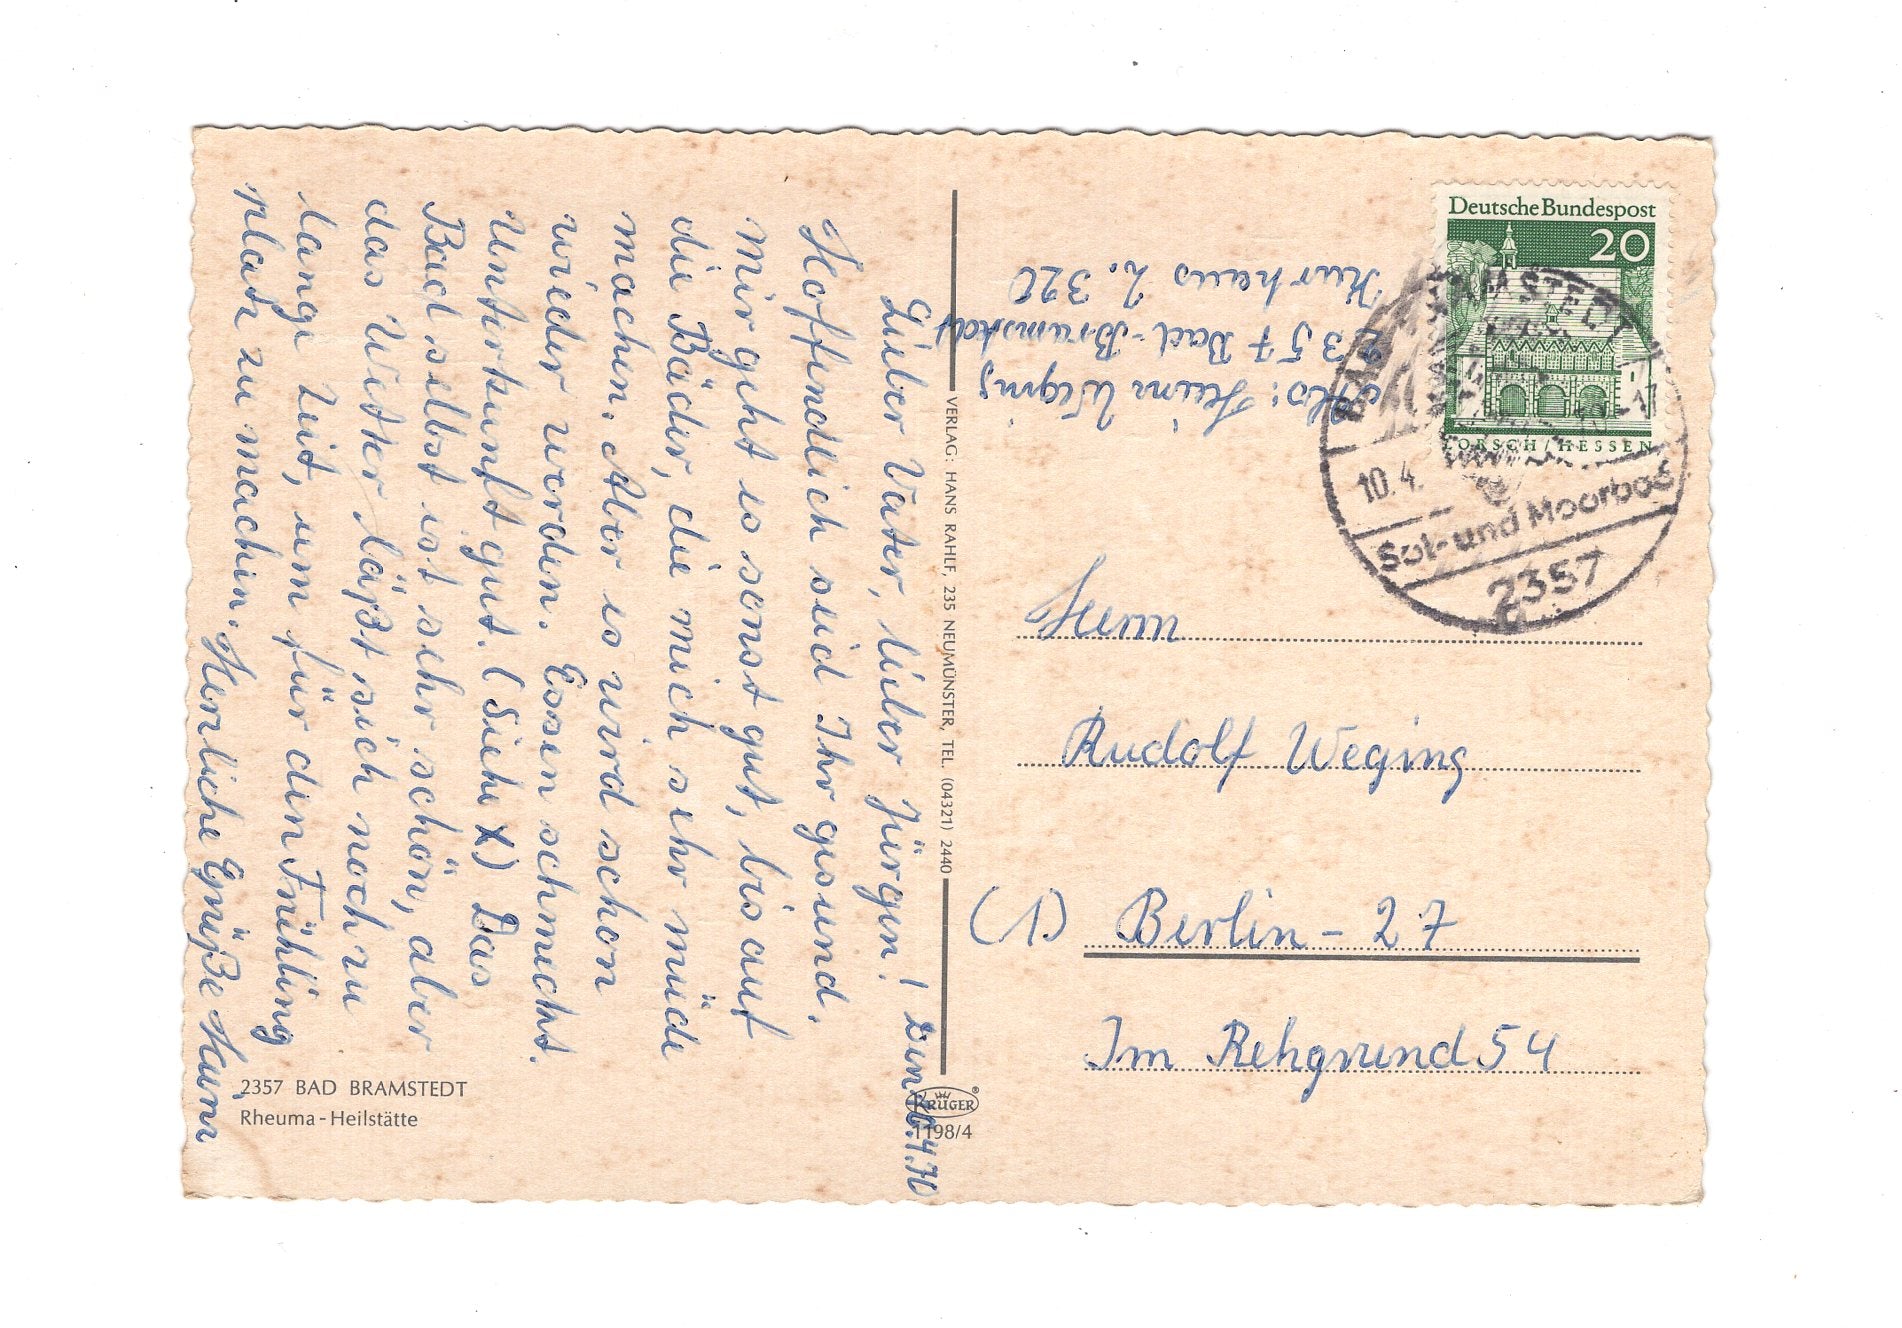 Den 10.4.70
Lieber Vater, lieber Jürgen!
Hoffendlich seid Ihr gesund.
Mir geht es sonst gut, bis auf
die Bäder, die mich sehr müde
machen. Aber es wird schon
wieder werden. Essen schmeckt.
Unterkunft gut. (Siehe X) Das
Bad selbst ist sehr schön, aber
das Wetter läßt sich noch zu
lange Zeit, um für den Frühling
platz zu machen. Herzliche Grüße Heinz
2357 BAD BRAMSTEDT
Rheuma-Heilstätte
VERLAG: HANS RAHLF, 235 NEUMÜNSTER, TEL. (04321) 2440
KRÜGER®
1198/4
Abs: Heinz Weging
2357 Bad-Bramstedt
Kurhaus Z. 320
Deutsche Bundespost
20
LORSCH/HESSEN
BAD BRAMSTEDT
10.4.
Sol- und Moorbad
2357
Herrn
Rudolf Weging
(1) Berlin-27
Im Rehgrund 54